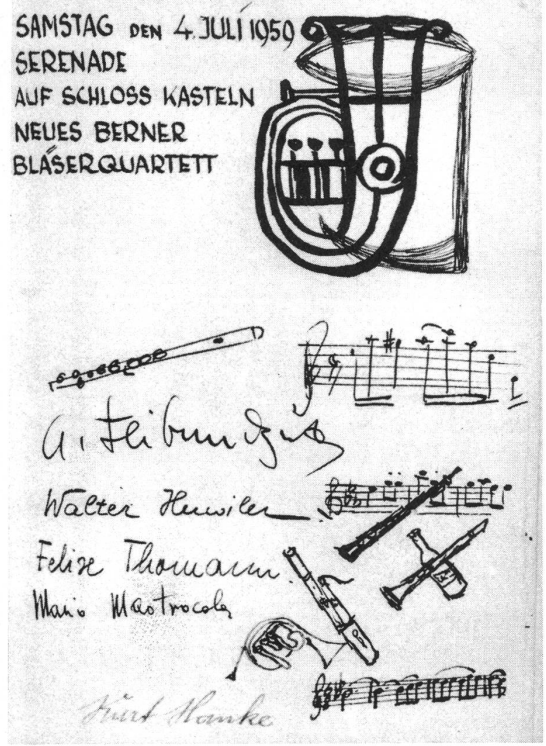 SAMSTAG DEN 4. JULI 1959
SERENADE
AUF SCHLOSS KASTELN
NEUES BERNER
BLÄSERQUARTETT
Walter Huwiler
Felise Thomann
Mario Mastrocola
Kurt Hanke